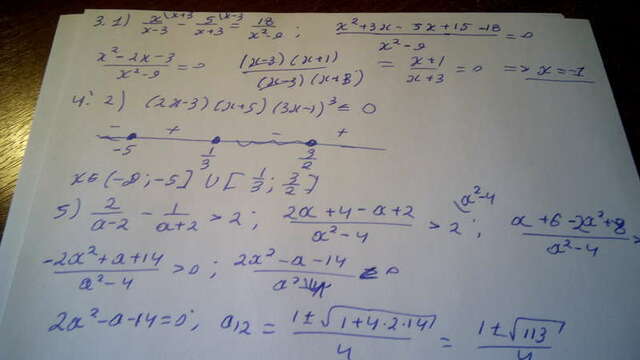 3. 1) x(x+3 / x-3 - 5(x-3 / x+3 = 18 / x²-9 ; x²+3x-5x+15-18 / x²-9 = 0
x²-2x-3 / x²-9 = 0 (x-3)(x+1) / (x-3)(x+3) = x+1 / x+3 = 0 => x=-1
4. 2) (2x-3)(x+5)(3x-1)³ ≤ 0
- + - +
-5 1/3 3/2
x∈(-∞;-5] U [1/3; 3/2]
5) 2 / a-2 - 1 / a+2 > 2; 2a+4-a+2 / a²-4 > 2 (a²-4 ; a+6-2a²+8 / a²-4 >
-2a²+a+14 / a²-4 > 0; 2a²-a-14 / a²-4 < 0
2a²-a-14=0; a12 = 1±√1+4·2·14 / 4 = 1±√113 / 4